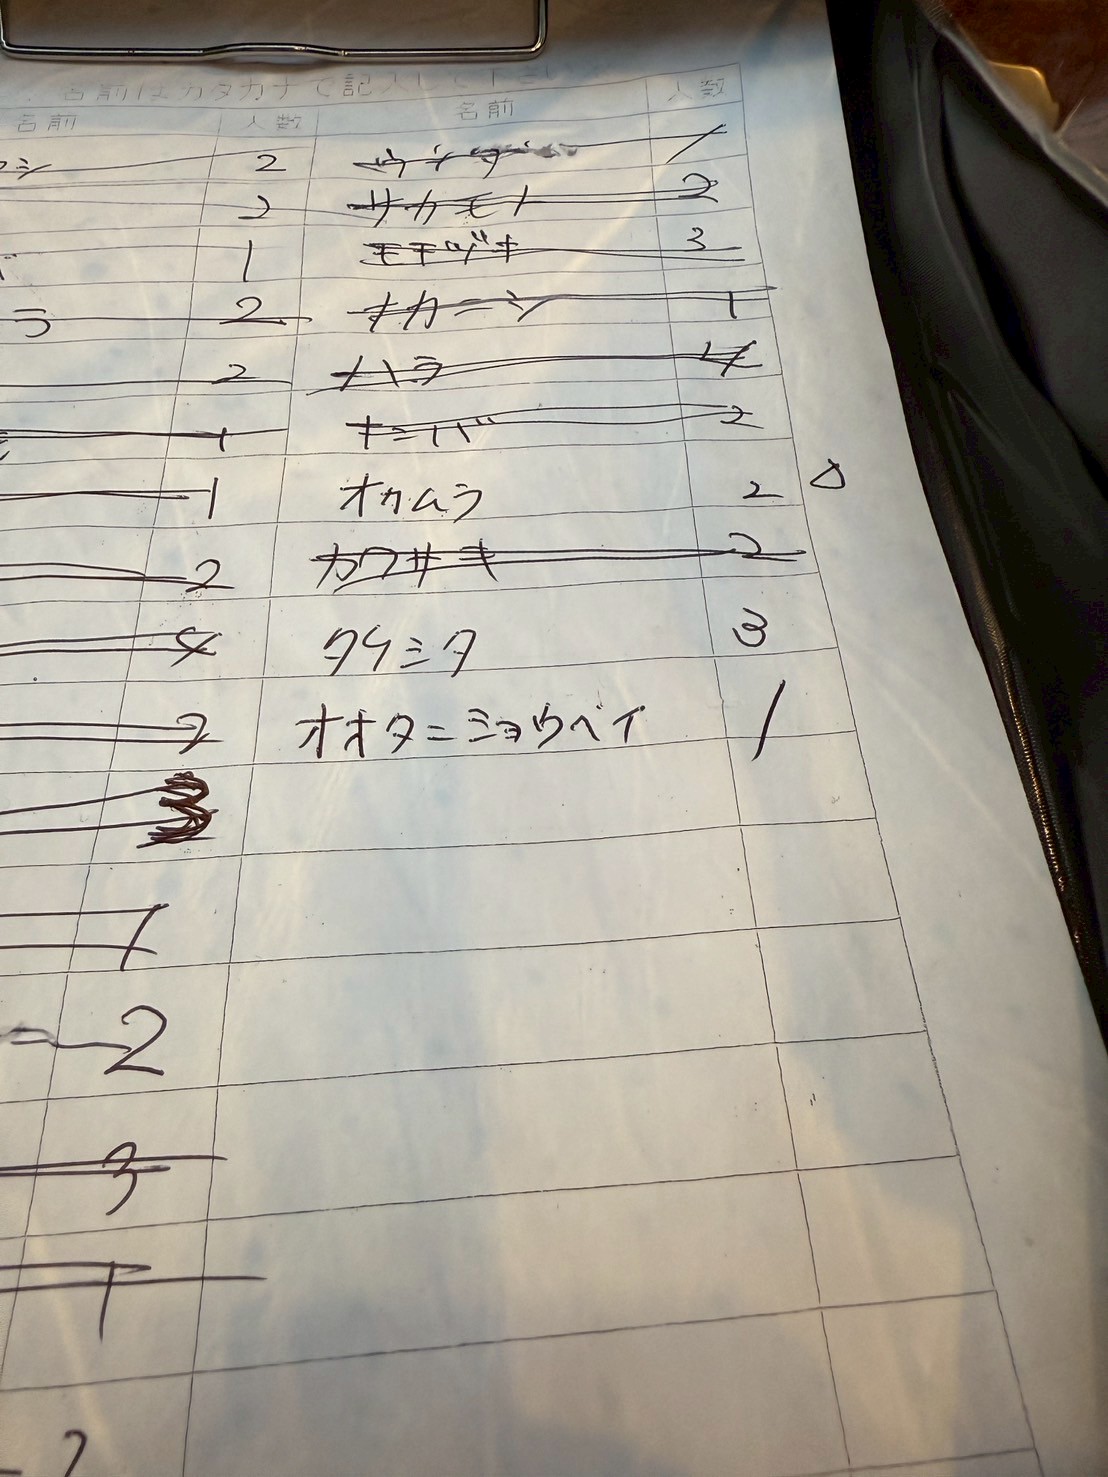 名前はカタカナで記入して下さい
名前 人数 名前 人数
2
2 サカモト 2
1 モチヅキ 3
ラ 2 ナカニシ 1
2 ハラ 4
1
1 オカムラ 2 △
2 カワサキ 2
4 タケミタ 3
2 オオタニショウヘイ 1
3
1
2
3
1
2